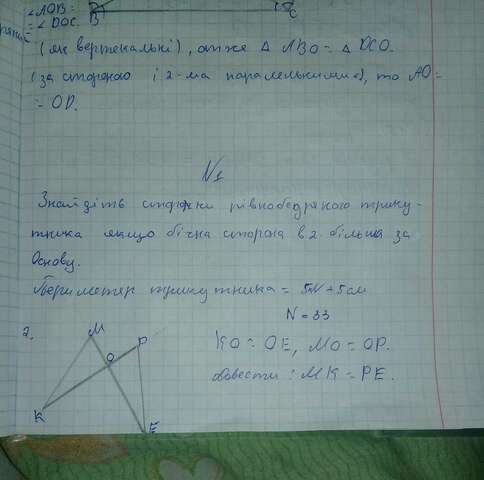 ∠AOB =
B C
= ∠DOC.
(як вертекальні), отже △ ABO = △ DCO.
(за стороною і 2-ма), то AO =
= OD.
N1
Знайдіть сторони рівнобедряного трику-
тника якщо бічна сторона в 2 більша за
Основу.
Периметер трикутника = 5N + 5см
N = 33
2.
M
P
O
K
E
KO = OE, MO = OP.
довести: MK = PE.